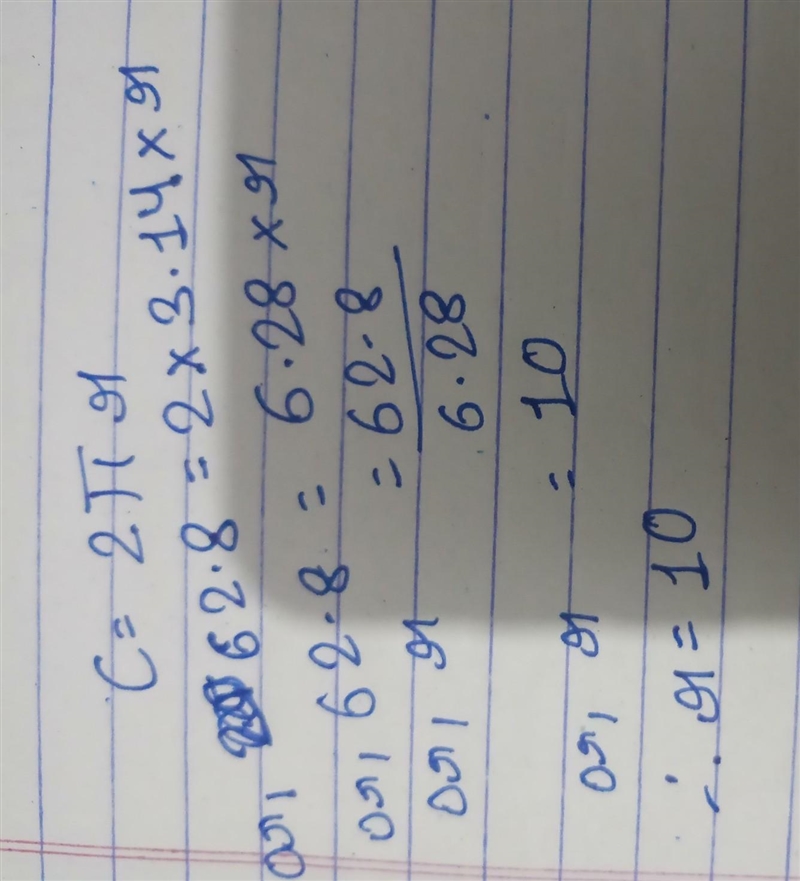 C = 2πr
or, 62.8 = 2 × 3.14 × r
or, 62.8 = 6.28 × r
or, r = 62.8
6.28
or, r = 10
∴ r = 10